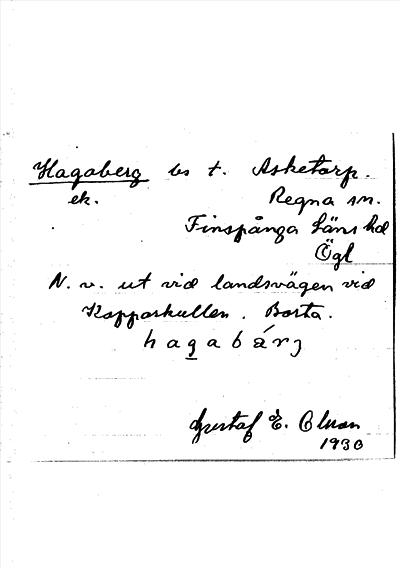 Hagaberg bs t. Asketorp.
ek. Regna sn.
Finspånga läns hd
Ögl
N. v. ut vid landsvägen vid
Kopparkullen. Borta.
hagabárj
Gustaf E. Olson
1930